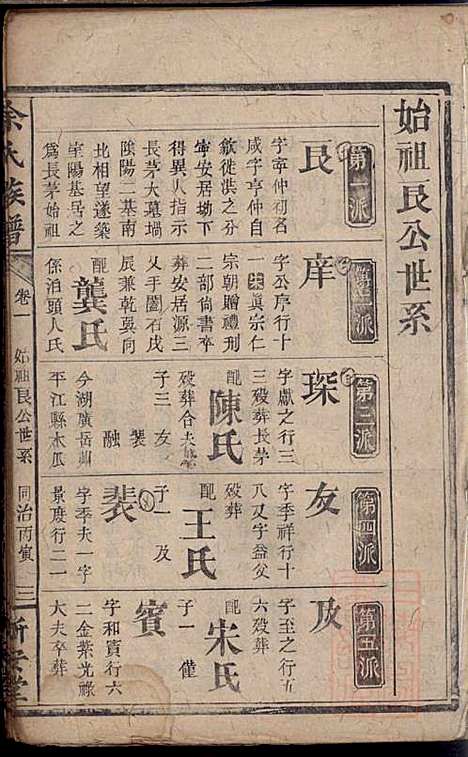 始祖艮公世系
第一派
艮
字宰仲初名
咸字亨仲自
歙徙洪之分
寧安居坳下
得異人指示
長茅大墓塲
陰陽二基南
北相望遂築
室陽基居之
爲長茅始祖
第二派
庠
字公序行十
一宋眞宗仁
宗朝贈禮刑
二部尙書卒
葬安居源三
乂手闔石戌
辰兼乾巽向
配龔氏
係泊頭人氏
第三派
琛
字獻之行三
三殁葬長茅
配陳氏
殁葬合夫
子三 友
裴 融
今湖廣岳州
平江縣木瓜
第四派
友
字季祥行十
八又字益友
殁葬
配王氏
子一 及
裴
字季夫一字
景度行二一
第五派
及
字至之行五
六殁葬
配宋氏
子一 僅
賓
字和賓行六
二金紫光祿
大夫卒葬
余氏族譜
卷一 始祖艮公世系 同治丙寅 三
新安堂